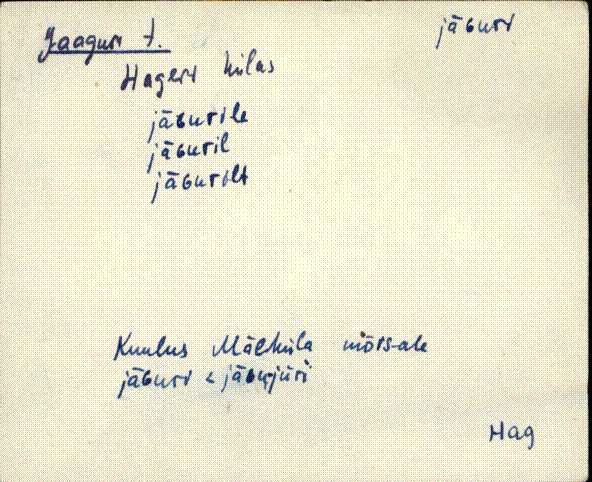 Jaaguri t. jäGuri
Hageri külas
jäGurile
jäGuril
jäGurilt
Kuulus Mäeküla mõis-ale
jäGuri < jäGujüri
Hag